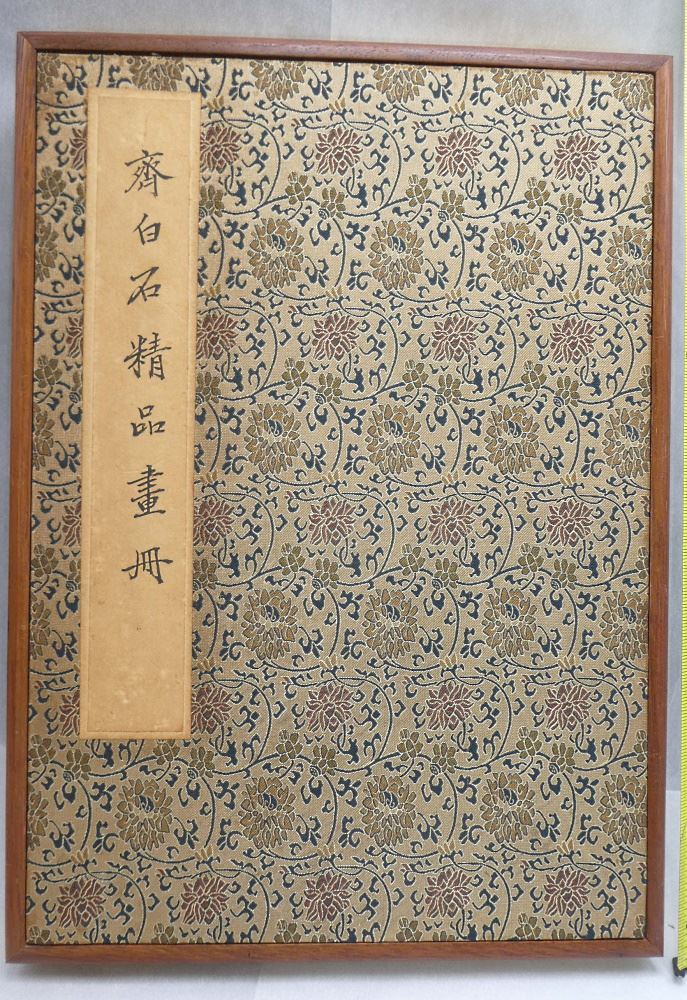 齊白石精品畫冊